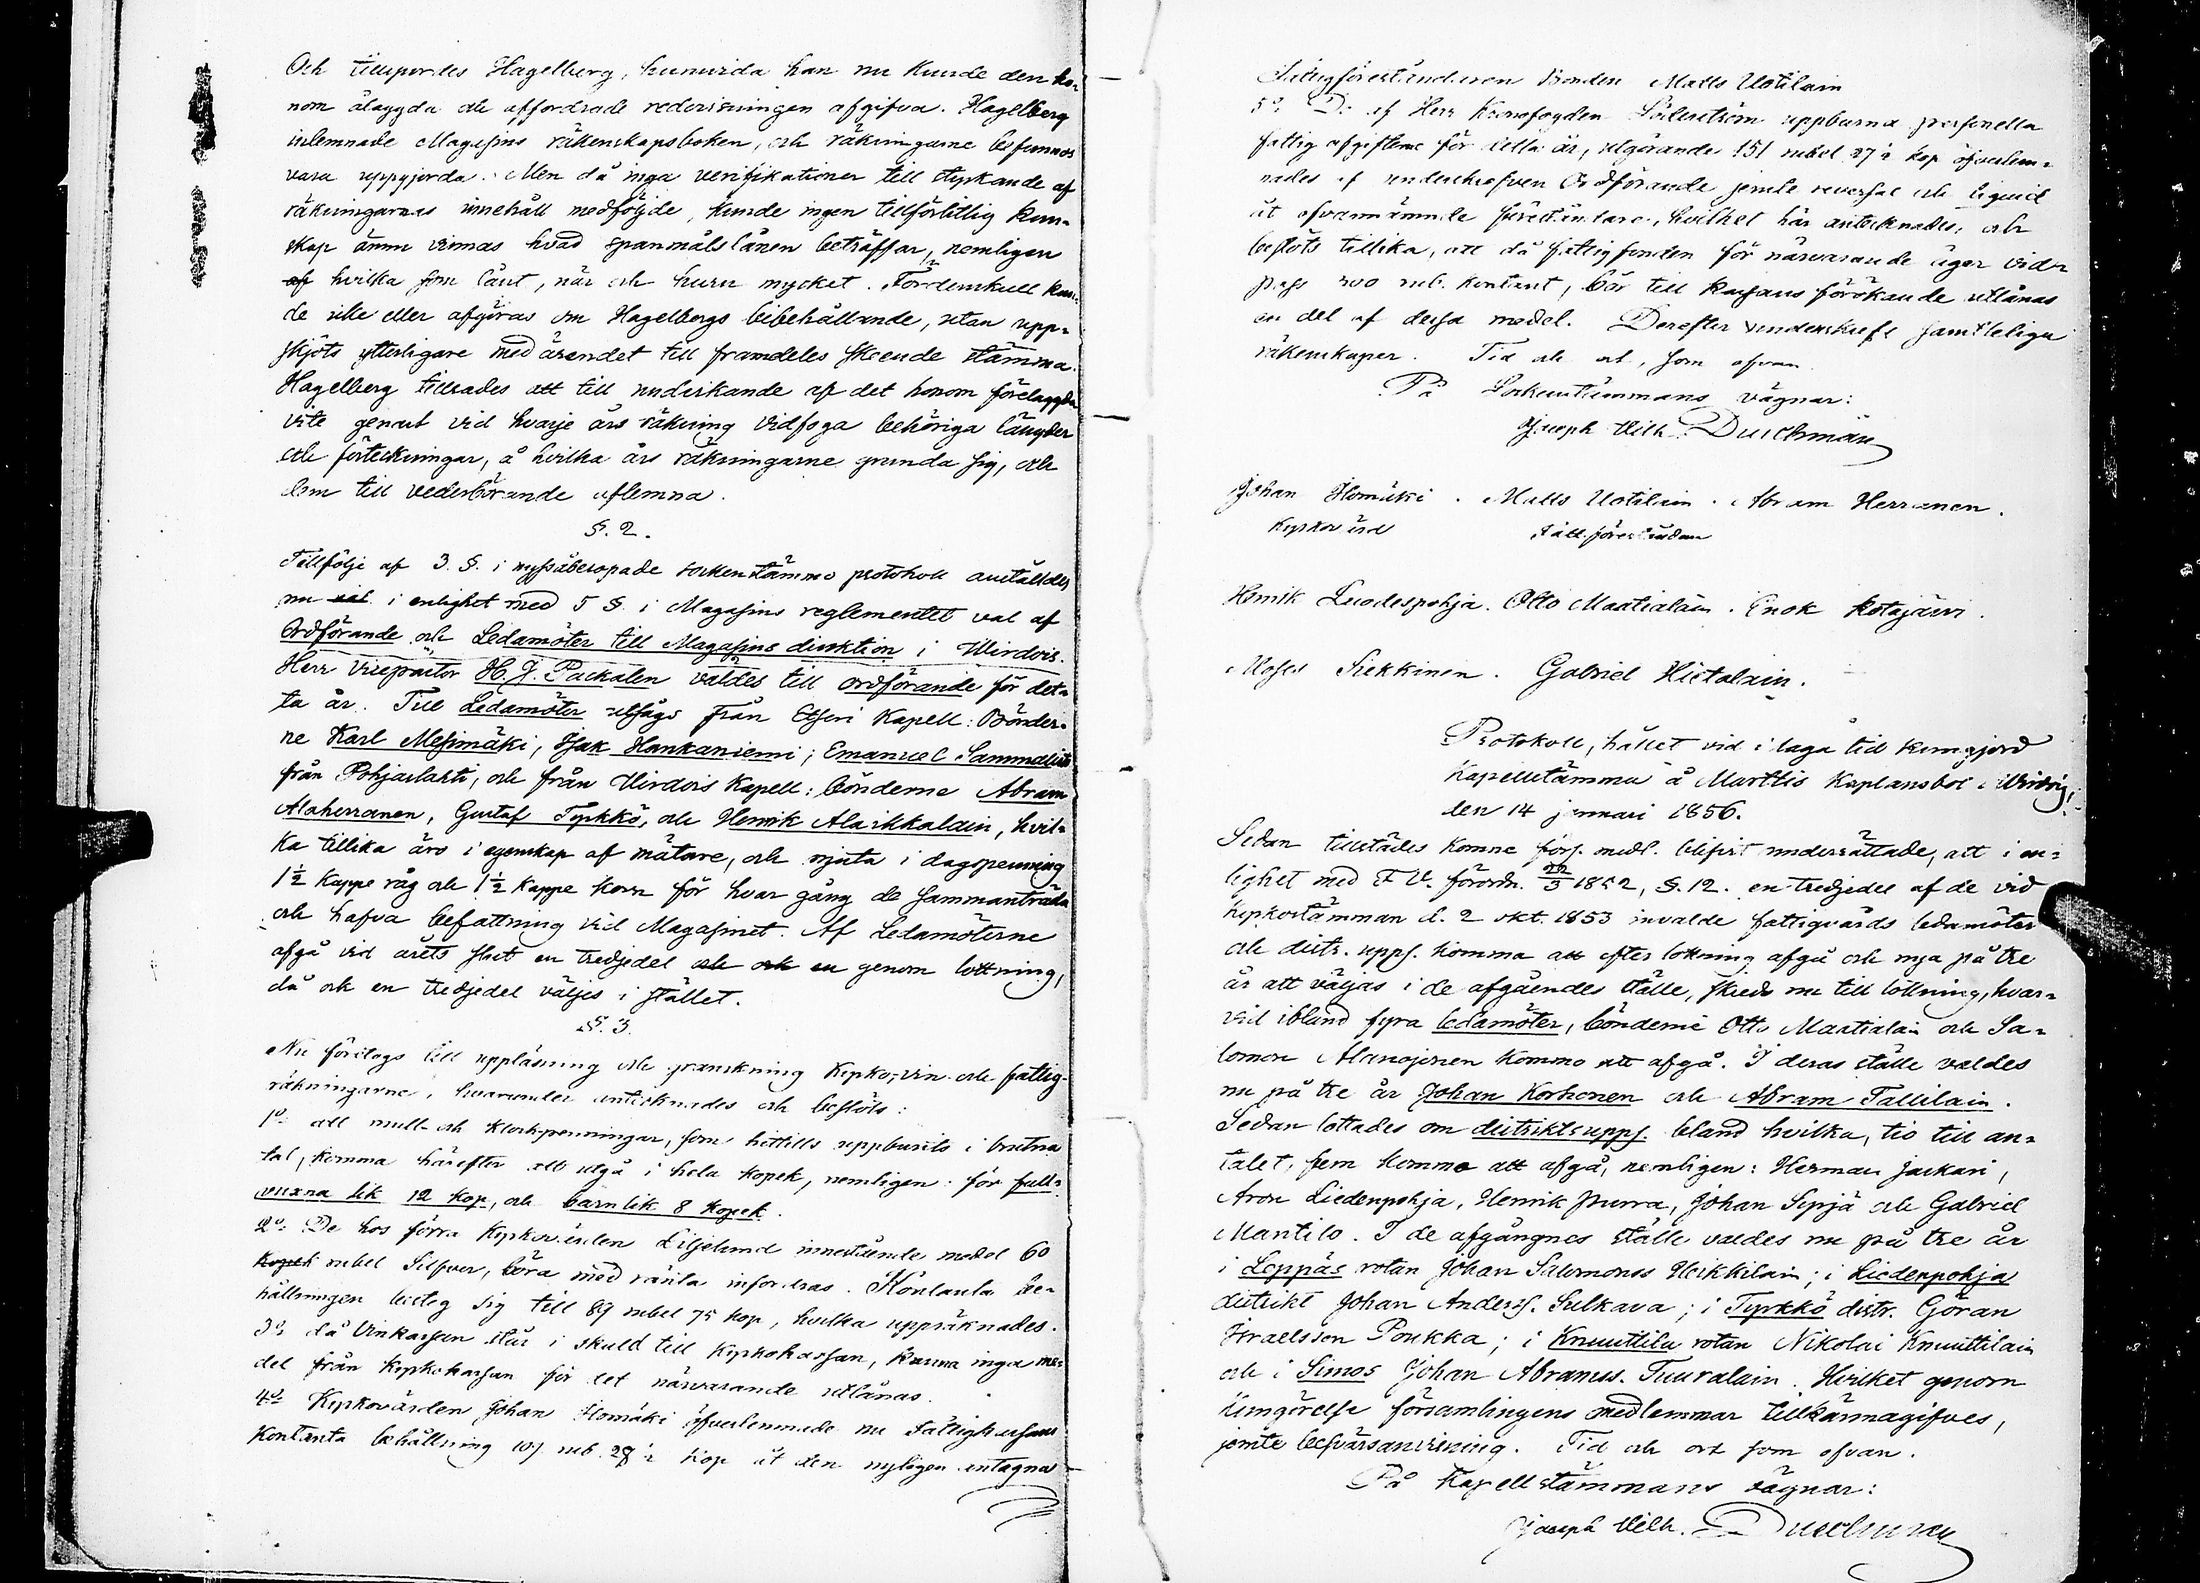 Och tillspordes Hagelberg, huruvida han nu kunde den ho-
nom ålaggda och affordrade redovisningen afgifva. Hagelberg
inlemnade Magasins räkenskapsboken, och räkningarne befunnos
vara uppgjorda. Men då inga verifikationer till styrkande af
räkningarnas innehåll medföljde, kunde ingen tillförlitlig kun-
skap ännu vinnas hvad spanmålslånen beträffar, nemligen
af hvilka som lånt, när och huru mycket. Fördenskull kun-
de icke eller afgöras om Hagelbergs bibehållande, utan upp-
skjöts ytterligare med ärendet till framdeles skeende stämma.
Hagelberg tillsades att till undvikande af det honom förelaggda
vite genast vid hvarje års räkning vidfoga behöriga längder
och förteckningar, å hvilka års räkningarne grunda sig, och
dem till vederbörande aflemna.
§. 2.
Tillfölje af 3. §. i nyssåberopade sockenstämmo protokoll anställdes
nu val i enlighet med 5 §. i Magasins reglementet val af
Ordförande och Ledamöter till Magasins direktion i Wirdois.
Herr Vicepastor H. J. Packalen valdes till ordförande för det-
ta år. Till Ledamöter utsågs från Etseri Kapell: Bönder-
ne Karl Mesimäki, Isak Hankaniemi, Emanuel Sammalisto
från Pohjaslahti, och från Wirdois Kapell: bönderne Abram
Alaherranen, Gustaf Tyrkkö, och Henrik Alaikkalain, hvil-
ka tillika äro i egenskap af mätare, och njuta i dagspenning
1½ Kappe råg och 1½ Kappe korn för hvar gång de sammanträda
och hafva befattning vid Magasinet. Af Ledamöterne
afgå vid årets slut en tredjedel och och en genom lottning,
då och en tredjedel väljes i stället.
§. 3.
Nu företogs till uppläsning och granskning Kyrko-, vin- och fattig-
räkningarne, hvarunder antecknades och beslöts:
1o: att mull- och klockpenningar, som hittills uppburits i brutna
tal, komma härefter att utgå i hela kopek, nemligen: för full-
vuxna lik 12 kop, och barnlik 8 kopek.
2o: De hos förra Kyrkovärden Liljelund innestående medel 60
kopek rubel Silfver, böra med ränta infordras. Kontanta be-
hållningen besteg sig till 89 rubel 75 kop, hvilka uppräknades.
3o: då Vinkassan står i skuld till Kyrkokassan, kunna inga me-
del från Kyrkokassan för det närvarande utlånas.
4o: Kyrkovärden Johan Ilomäki öfverlemnade nu Fattigkassans
Kontanta behållning 107 rub. 28½ kop åt den nyligen antagna
Fattigföreståndaren Bonden Matts Uotilain
5o: D: af Herr Kronofogden Söderström uppburna personella
fattig afgifterne för detta år, utgörande 151 rubel 27½ kop öfverlem-
nades af underskrefven Ordförande jemte reversal och liquid
åt ofvannämnde föreståndare, hvilket här antecknades, och
beslöts tillika, att då fattigfonden för närvarande äger vid
pass 300 rub. kontant, bör till kassans förökande utlånas
en del af dessa medel. Derefter underskrefs samtteliga
räkenskaper. Tid och ort, som ofvan.
På Sockenstämmans vägnar:
Joseph Wilh. Duchmän
Johan Ilomäki. Matts Uotilain. Abram Herranen.
Kyrkovärd Fatt.föreståndare
Henrik Luodespohja. Otto Maatialain. Enok Kotajärvi.
Moses Siekkinen. Gabriel Hietalain.
Protokoll, hållet vid i laga tid kungjord
Kapellstämma å Marttis Kaplansbol i Virdois,
den 14 januari 1856.
Sedan tillstädes komne förs. medl. blifvit underrättade, att i en-
lighet med F. V. förordn. 22/3 1852, §. 12. en tredjedel af de vid
Kyrkostämman d. 2 okt. 1853 invalde fattigvårds ledamöter
och distr. upps. komma att efter lottning afgå och nya på tre
år att väljas i de afgåendes ställe, skreds nu till lottning, hvar-
vid ibland fyra ledamöter, bönderne Otto Maatialain och Sa-
lomon Alanojanen kommo att afgå. I deras ställe valdes
nu på tre år Johan Korhonen och Abram Tallilain.
Sedan lottades om distriktsupps. bland hvilka, tio till an-
talet, fem kommo att afgå, nemligen: Herman Jaskari,
Aron Liedenpohja, Henrik Purra, Johan Syrjä och Gabriel
Mantilo. I de afgångnes ställe valdes nu på tre år
i Leppäs rotan Johan Salomonss Heikkilain; i Liedenpohja
distrikt Johan Anderss. Sulkava; i Tyrkkö distr. Göran
Israelsson Poukka; i Knuuttila rotan Nikolai Knuuttilain
och i Simos Johan Abramss. Tuuralain. Hvilket genom
kungörelse församlingens medlemmar tillkännagifves,
jemte besvärsanvisning. Tid och ort som ofvan.
På Kapellstämmans vägnar:
Joseph Wilh. Duchmän